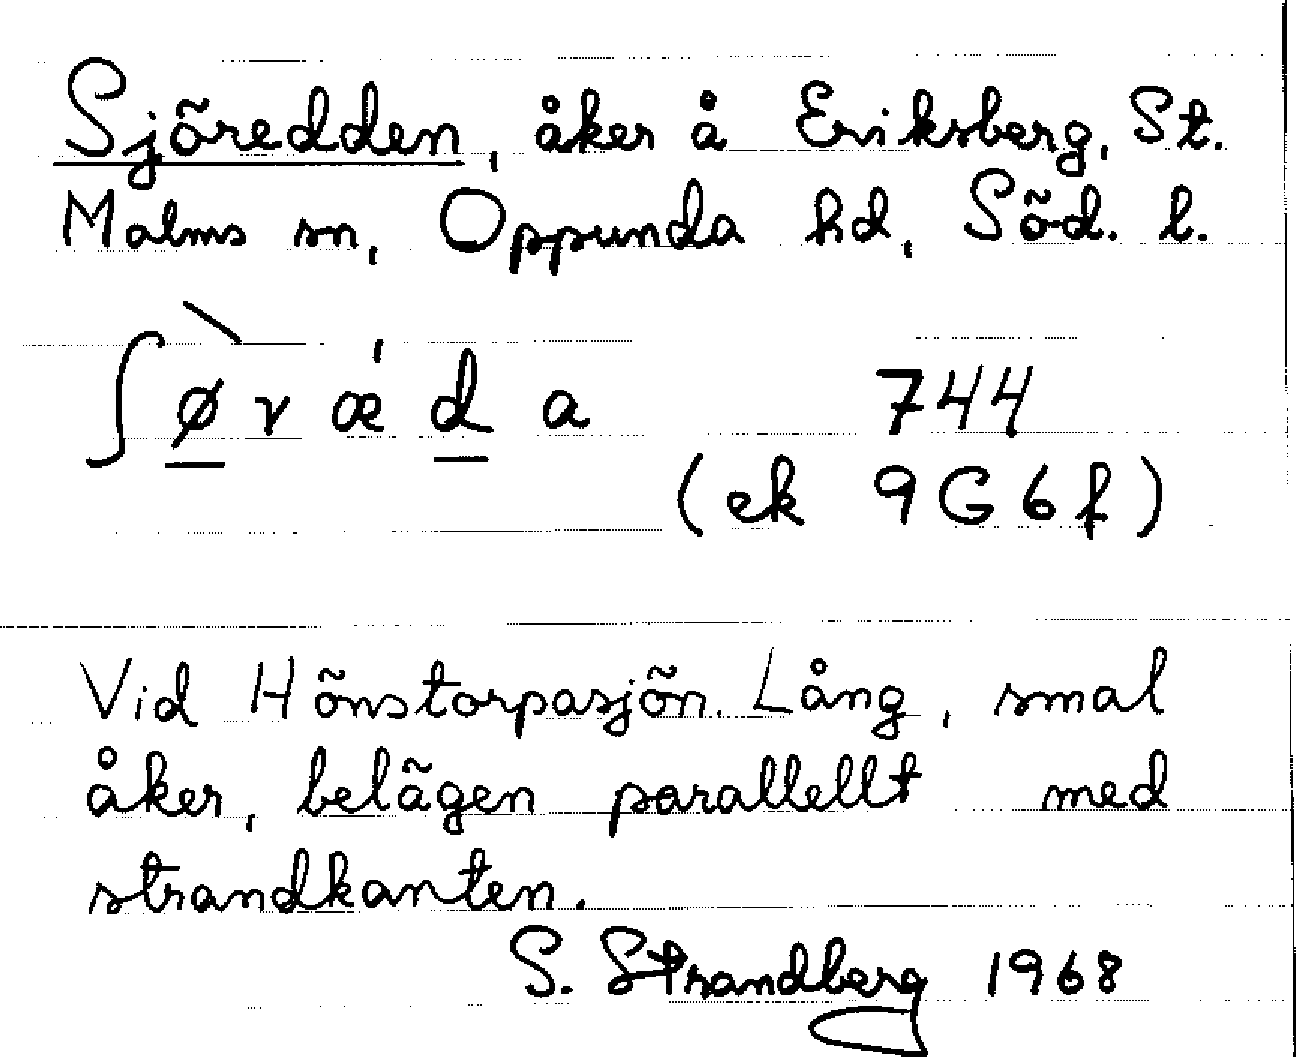 Sjöredden, åker å Eriksberg, St.
Malms sn, Oppunda hd, Söd. l.
ʃø̀rǽda 744
(ek 9G6f)
Vid Hönstorpasjön. Lång, smal
åker, belägen parallellt med
strandkanten.
S. Strandberg 1968